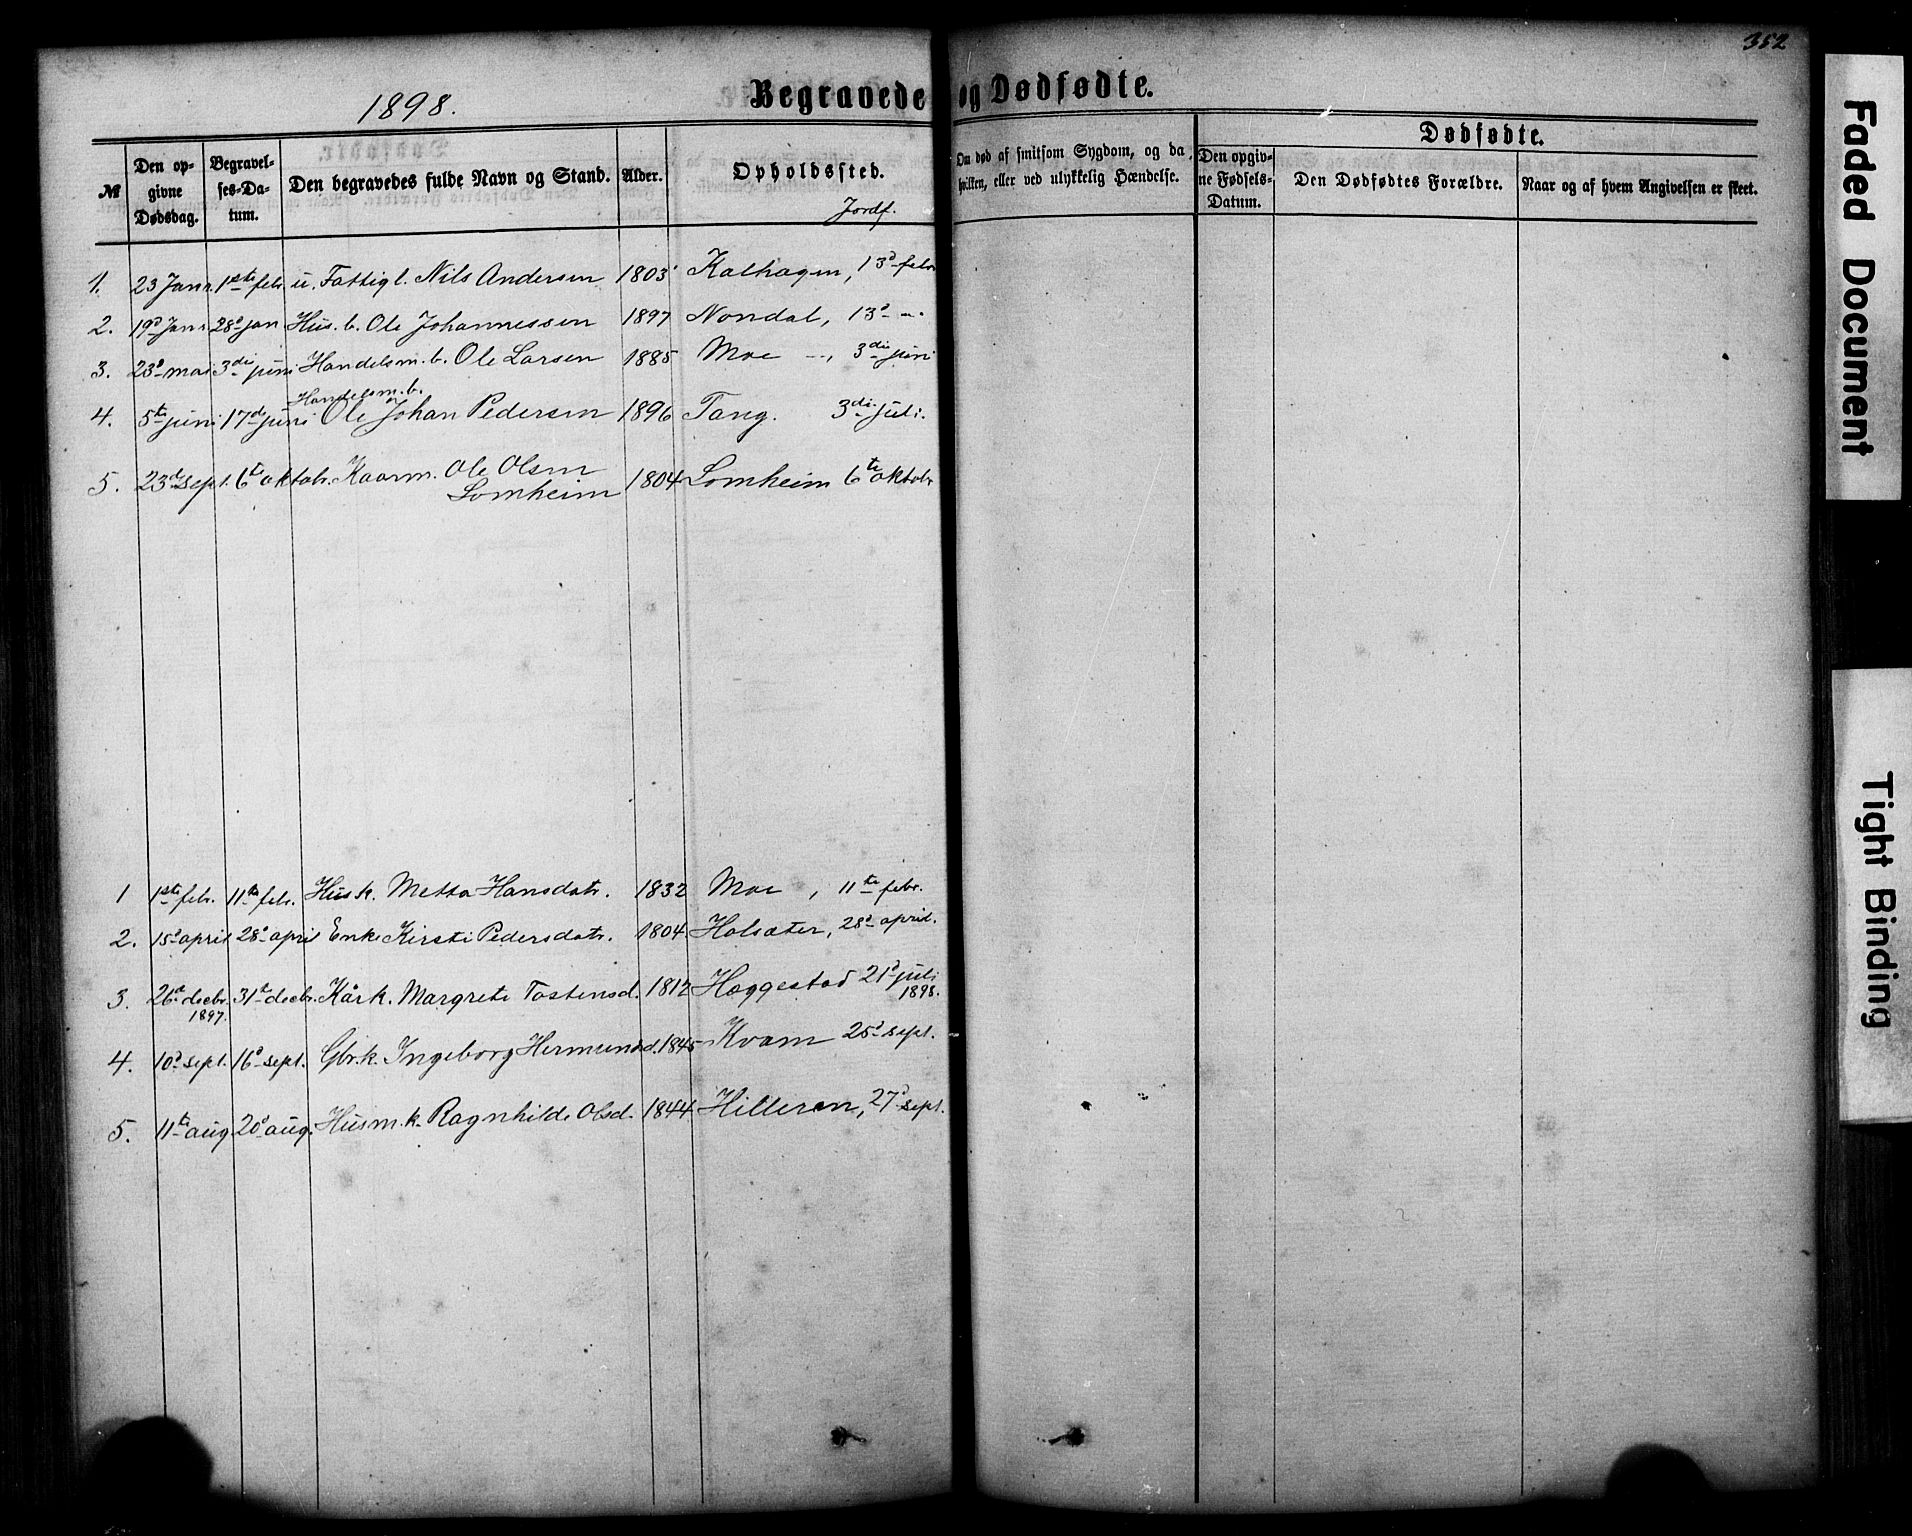 352
1898.
Begravede og Dødfødte.
Dødfødte.
№
Den op-
givne
Dødsdag.
Begravel-
ses-Da-
tum.
Den begravedes fulde Navn og Stand.
Alder.
Opholdssted.
Jordf.
Om død af smitsom Sygdom, og da
hvilken, eller ved ulykkelig Hændelse.
Den opgiv-
ne Fødsels-
Datum.
Den Dødfødtes Forældre.
Naar og af hvem Angivelsen er skeet.
1. 23 Janr. 1ste febr. u. Fattigl. Nils Andersen 1803 Kalhagen, 13d febr
2. 19d Janr 28d jan Hus. b. Ole Johannessen 1897 Nondal, 13d -"-
3. 23d mai 3die juni Handelsm. b. Ole Larsen 1885 Moe -, 3die juni
Handelsm. b.
4. 5te juni 17de juni Ole Johan Pedersen 1896 Tang. 3die juli.
5. 23d sept. 6te oktobr. Kaarm. Ole Olsen
Lomheim 1804 Lomheim 6te oktobr
1 1ste febr. 11te febr. Husk. Metta Hansdatr. 1832 Moe , 11te febr.
2. 15d april 28d april Enke Kirsti Pedersdatr. 1804 Halsæter, 28d april.
3. 26de decbr. 31te decbr. Kårk. Margrete Tostensd. 1812 Hæggestad 21d juli
1897. 1898.
4. 10d sept. 16d sept. Gbrk. Ingeborg Hermundsd. 1845 Kvam 25d sept.
5. 11te aug. 20d aug. Husm.k. Ragnhilde Olsd. 1844 Hilleren, 27d sept.
Faded Document
Tight Binding